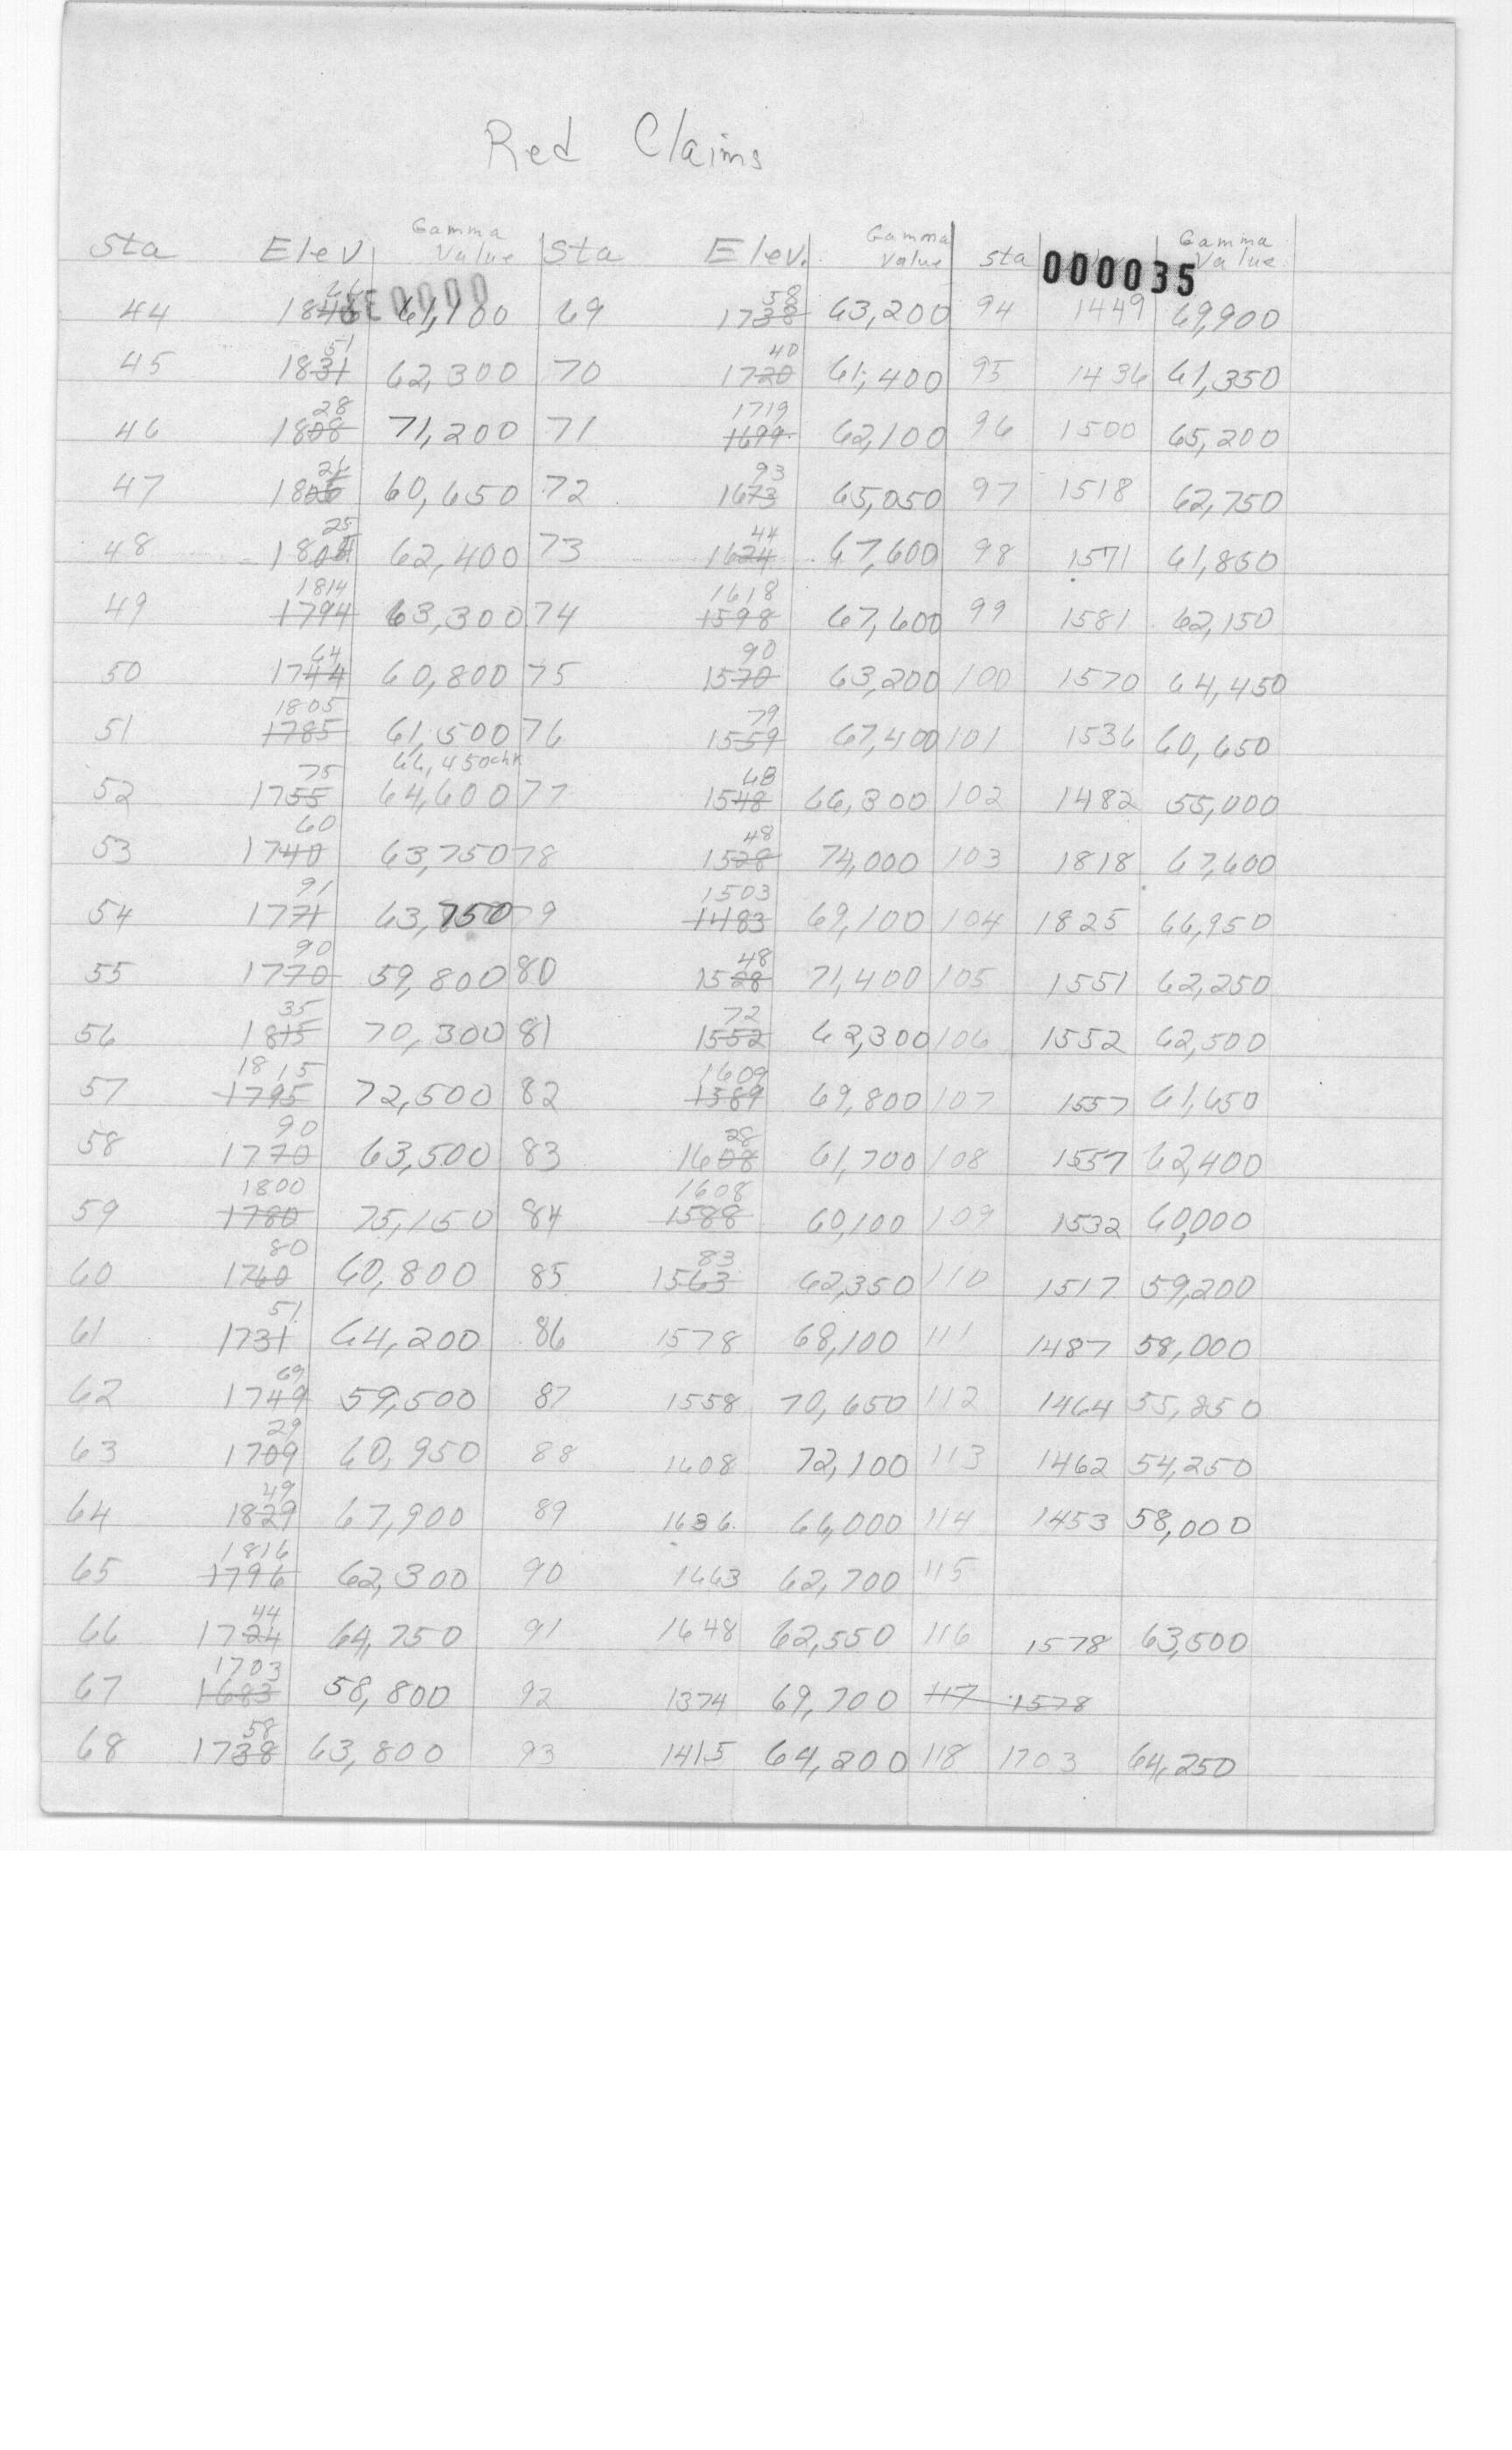 Red Claims
Sta Elev Gamma Value Sta Elev. Gamma Value Sta Gamma Value
000035
44 61,100 69 58 1738 63,200 94 1449 69,900
45 51 1831 62,300 70 40 1720 61,400 95 1436 61,350
46 28 1808 71,200 71 1719 1699 62,100 96 1500 65,200
47 60,650 72 93 1673 65,050 97 1518 62,750
48 25 62,400 73 44 1624 67,600 98 1571 61,850
49 1814 1794 63,300 74 1618 1598 67,600 99 1581 62,150
50 64 1744 60,800 75 90 1570 63,200 100 1570 64,450
51 1805 1785 61,500 76 79 1559 67,400 101 1536 60,650
66,450 chk
52 75 1755 64,600 77 68 1548 66,300 102 1482 55,000
53 60 1740 63,750 78 48 1528 74,000 103 1818 67,600
54 91 1771 63,750 79 1503 1483 69,100 104 1825 66,950
55 90 1770 59,800 80 48 1528 71,400 105 1551 62,250
56 35 1815 70,300 81 72 1552 62,300 106 1552 62,500
57 1815 1795 72,500 82 1609 1589 69,800 107 1557 61,650
58 90 1770 63,500 83 28 1608 61,700 108 1557 62,400
59 1800 1780 75,150 84 1608 1588 60,100 109 1532 60,000
60 80 1760 60,800 85 83 1563 62,350 110 1517 59,200
61 51 1731 64,200 86 1578 68,100 111 1487 58,000
62 69 1749 59,500 87 1558 70,650 112 1464 55,850
63 29 1709 60,950 88 1608 72,100 113 1462 54,250
64 49 1829 67,900 89 1636 66,000 114 1453 58,000
65 1816 1796 62,300 90 1663 62,700 115
66 44 1724 64,750 91 1648 62,550 116 1578 63,500
67 1703 1683 58,800 92 1374 69,700 117 1578
68 58 1738 63,800 93 1415 64,200 118 1703 64,250